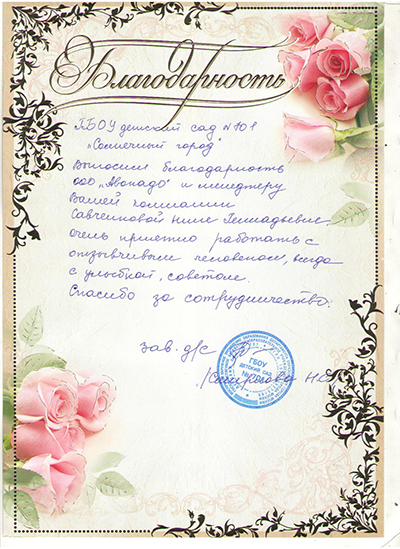 Благодарность
ГБОУ детский сад №701
"Солнечный город"
Выносим благодарность
ООО "Авокадо" и менеджеру
Вашей компании
Савченковой Нине Геннадьевне.
Очень приятно работать с
отзывчивым человеком, всегда
с улыбкой, советом.
Спасибо за сотрудничество.
зав. д/с
ГБОУ
ДЕТСКИЙ САД